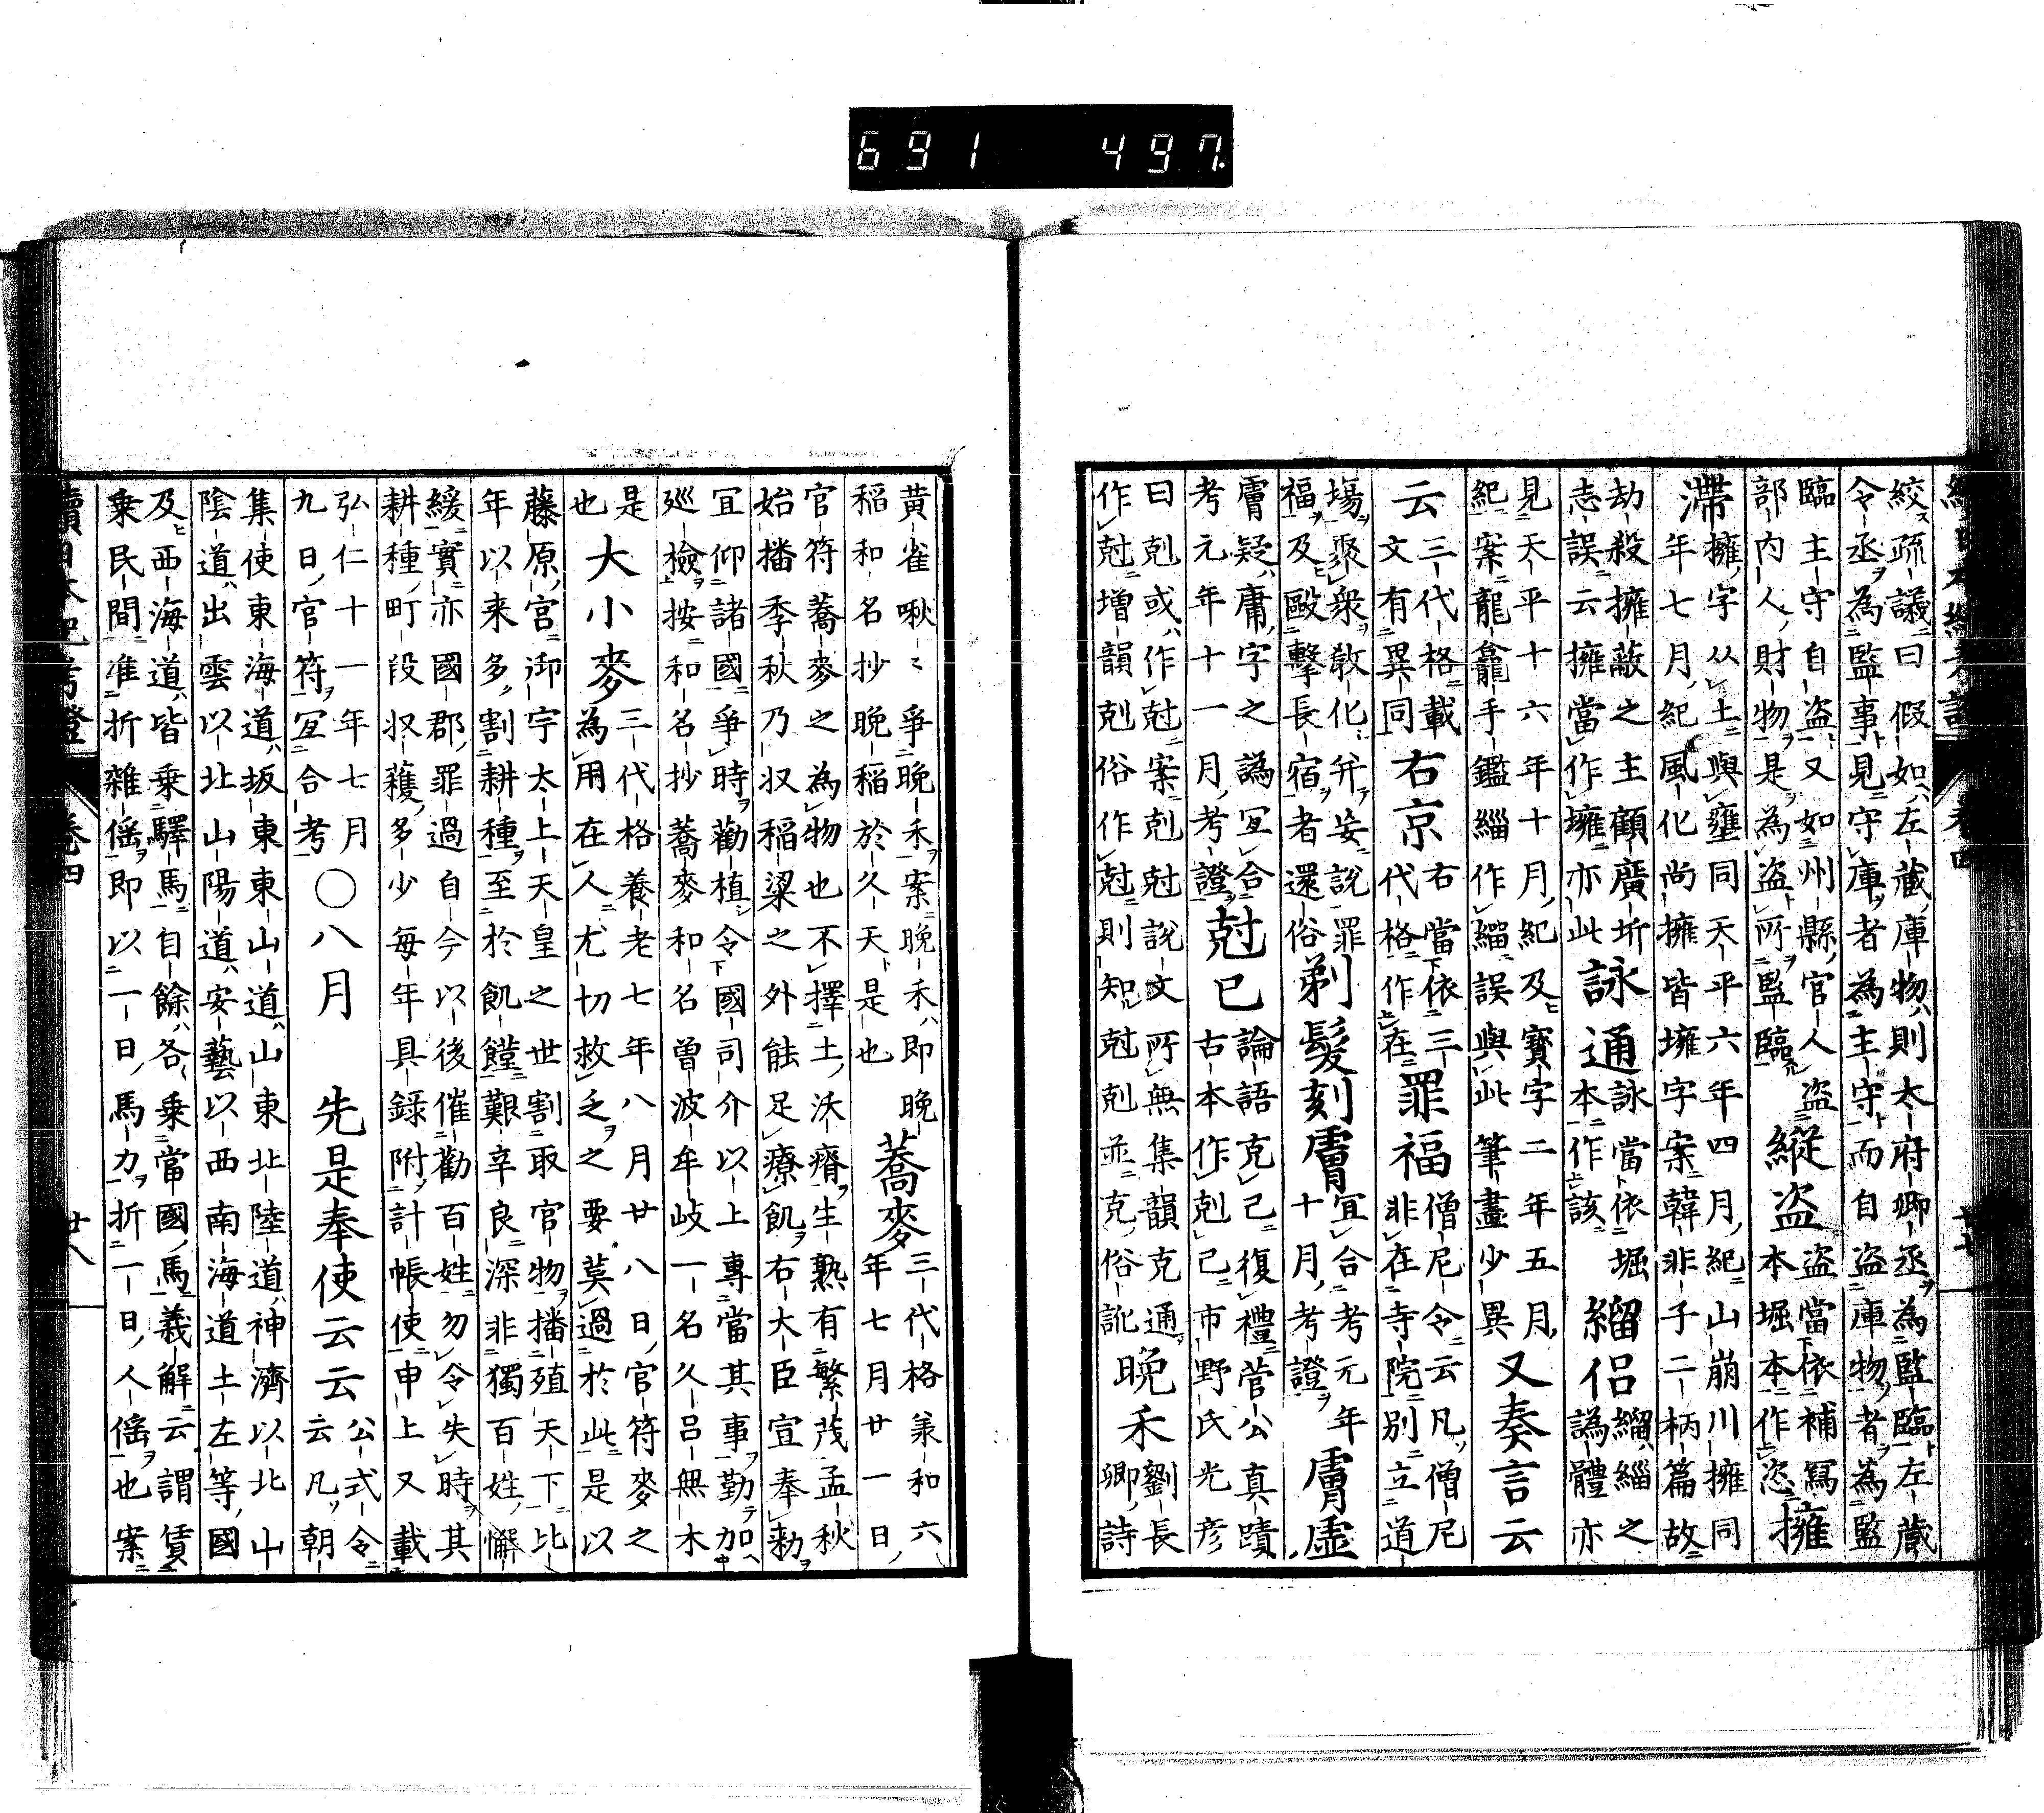 691 497
絞疏議曰假如左藏庫物則太府卿丞為監臨左藏
令丞為監事見守庫者為主守而自盗庫物者為監
臨主守自盗又如州縣官人盗
部内人財物是為盗所監臨
縦盗
盗當依補冩
本堀本作恣
擁
滞
擁字从土與壅同天平六年四月紀山崩川擁同
年七月紀風化尚擁皆擁字案韓非子二柄篇故
劫殺擁蔽之主顧廣圻
志誤云擁當作壅亦此
詠通
詠當依堀
本作該
繝侣
繝緇之
譌體亦
見天平十六年十月紀及寳字二年五月
紀案龍龕手鑑緇作繝誤與此筆畫少異
又奏言云
云
三代格載
文有異同
右京
右當依三
代格作在
罪福
僧尼令云凡僧尼
非在寺院別立道
塲聚衆敎化并妄説罪
福及毆擊長宿者還俗
剃髮刻膚
宜合考元年
十月考證
膚虚
膚疑庸字之譌宜合
考元年十一月考證
尅已
論語克己復禮菅公真蹟
古本作剋己市野氏光彦
曰剋或作尅案剋尅説文所無集韻克通
作尅増韻剋俗作尅則知尅剋並克俗訛
晩禾
劉長
卿詩
黄雀啾〻爭晩禾案晩禾即晩
稲和名抄晩稲於久天是也
蕎麥
三代格羕和六
年七月廿一日
官符蕎麥之為物也不擇土沃瘠生熟有繁茂孟秋
始播季秋乃収稲梁之外能足療飢右大臣宣奉勅
宜仰諸國爭時勸植令國司介以上專當其事勤加
廵檢按和名抄蕎麥和名曽波牟岐一名久呂無木
是
也
大小麥
三代格養老七年八月廿八日官符麥之
為用在人尤切救乏之要莫過於此是以
藤原宮御宇太上天皇之世割取官物播殖天下比
年以来多割耕種至於飢饉艱辛良深非獨百姓懈
緩實亦國郡罪過自今以後催勸百姓勿令失時其
耕種町段収穫多少毎年具録附計帳使申上又載
弘仁十一年七月
九日官符宜合考
〇八月　先是奉使云云
公式令
云凡朝
集使東海道坂東東山道山東北陸道神濟以北山
陰道出雲以北山陽道安藝以西南海道土左等國
及西海道皆乗驛馬自餘各乗當國馬義解云謂賃
乗民間准折雜傜即以一日馬力折一日人傜也案
續日本紀考證　卷四　廿八